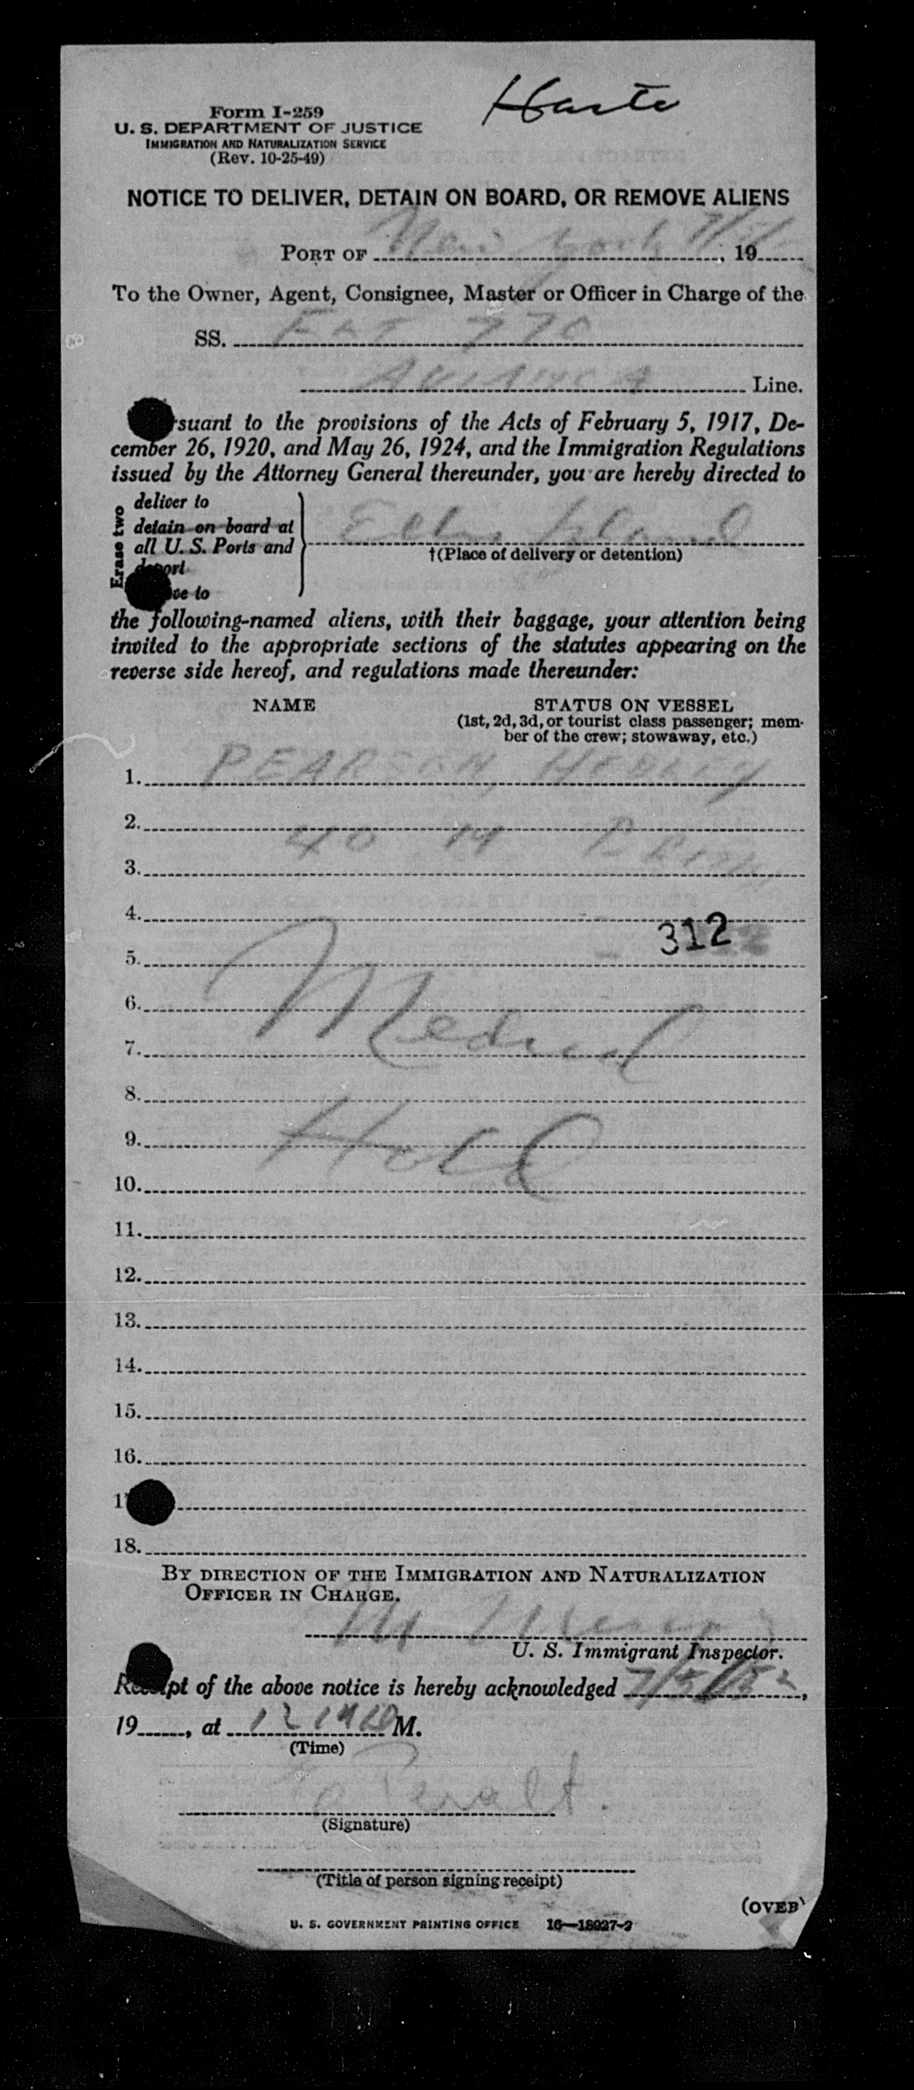 Harte
Form I-259
U. S. DEPARTMENT OF JUSTICE
IMMIGRATION AND NATURALIZATION SERVICE
(Rev. 10-25-49)
NOTICE TO DELIVER, DETAIN ON BOARD, OR REMOVE ALIENS
PORT OF New York 7/5/, 19
To the Owner, Agent, Consignee, Master or Officer in Charge of the
SS. FLT 770
AVIANCA Line.
suant to the provisions of the Acts of February 5, 1917, De-
cember 26, 1920, and May 26, 1924, and the Immigration Regulations
issued by the Attorney General thereunder, you are hereby directed to
Erase two
deliver to
detain on board at
all U. S. Ports and
deport
ve to
Ellis Island
†(Place of delivery or detention)
the following-named aliens, with their baggage, your attention being
invited to the appropriate sections of the statutes appearing on the
reverse side hereof, and regulations made thereunder:
NAME STATUS ON VESSEL
(1st, 2d, 3d, or tourist class passenger; mem-
ber of the crew; stowaway, etc.)
1. PEARSON, HEDLEY
2.
3. 40 M
4.
5. 312
6.
7. Medical
8.
9. Hold
10.
11.
12.
13.
14.
15.
16.
1
18.
BY DIRECTION OF THE IMMIGRATION AND NATURALIZATION
OFFICER IN CHARGE.
U. S. Immigrant Inspector.
Receipt of the above notice is hereby acknowledged 7/5/52,
19, at M.
(Time)
(Signature)
(Title of person signing receipt)
(OVER
U. S. GOVERNMENT PRINTING OFFICE 16—18927-2